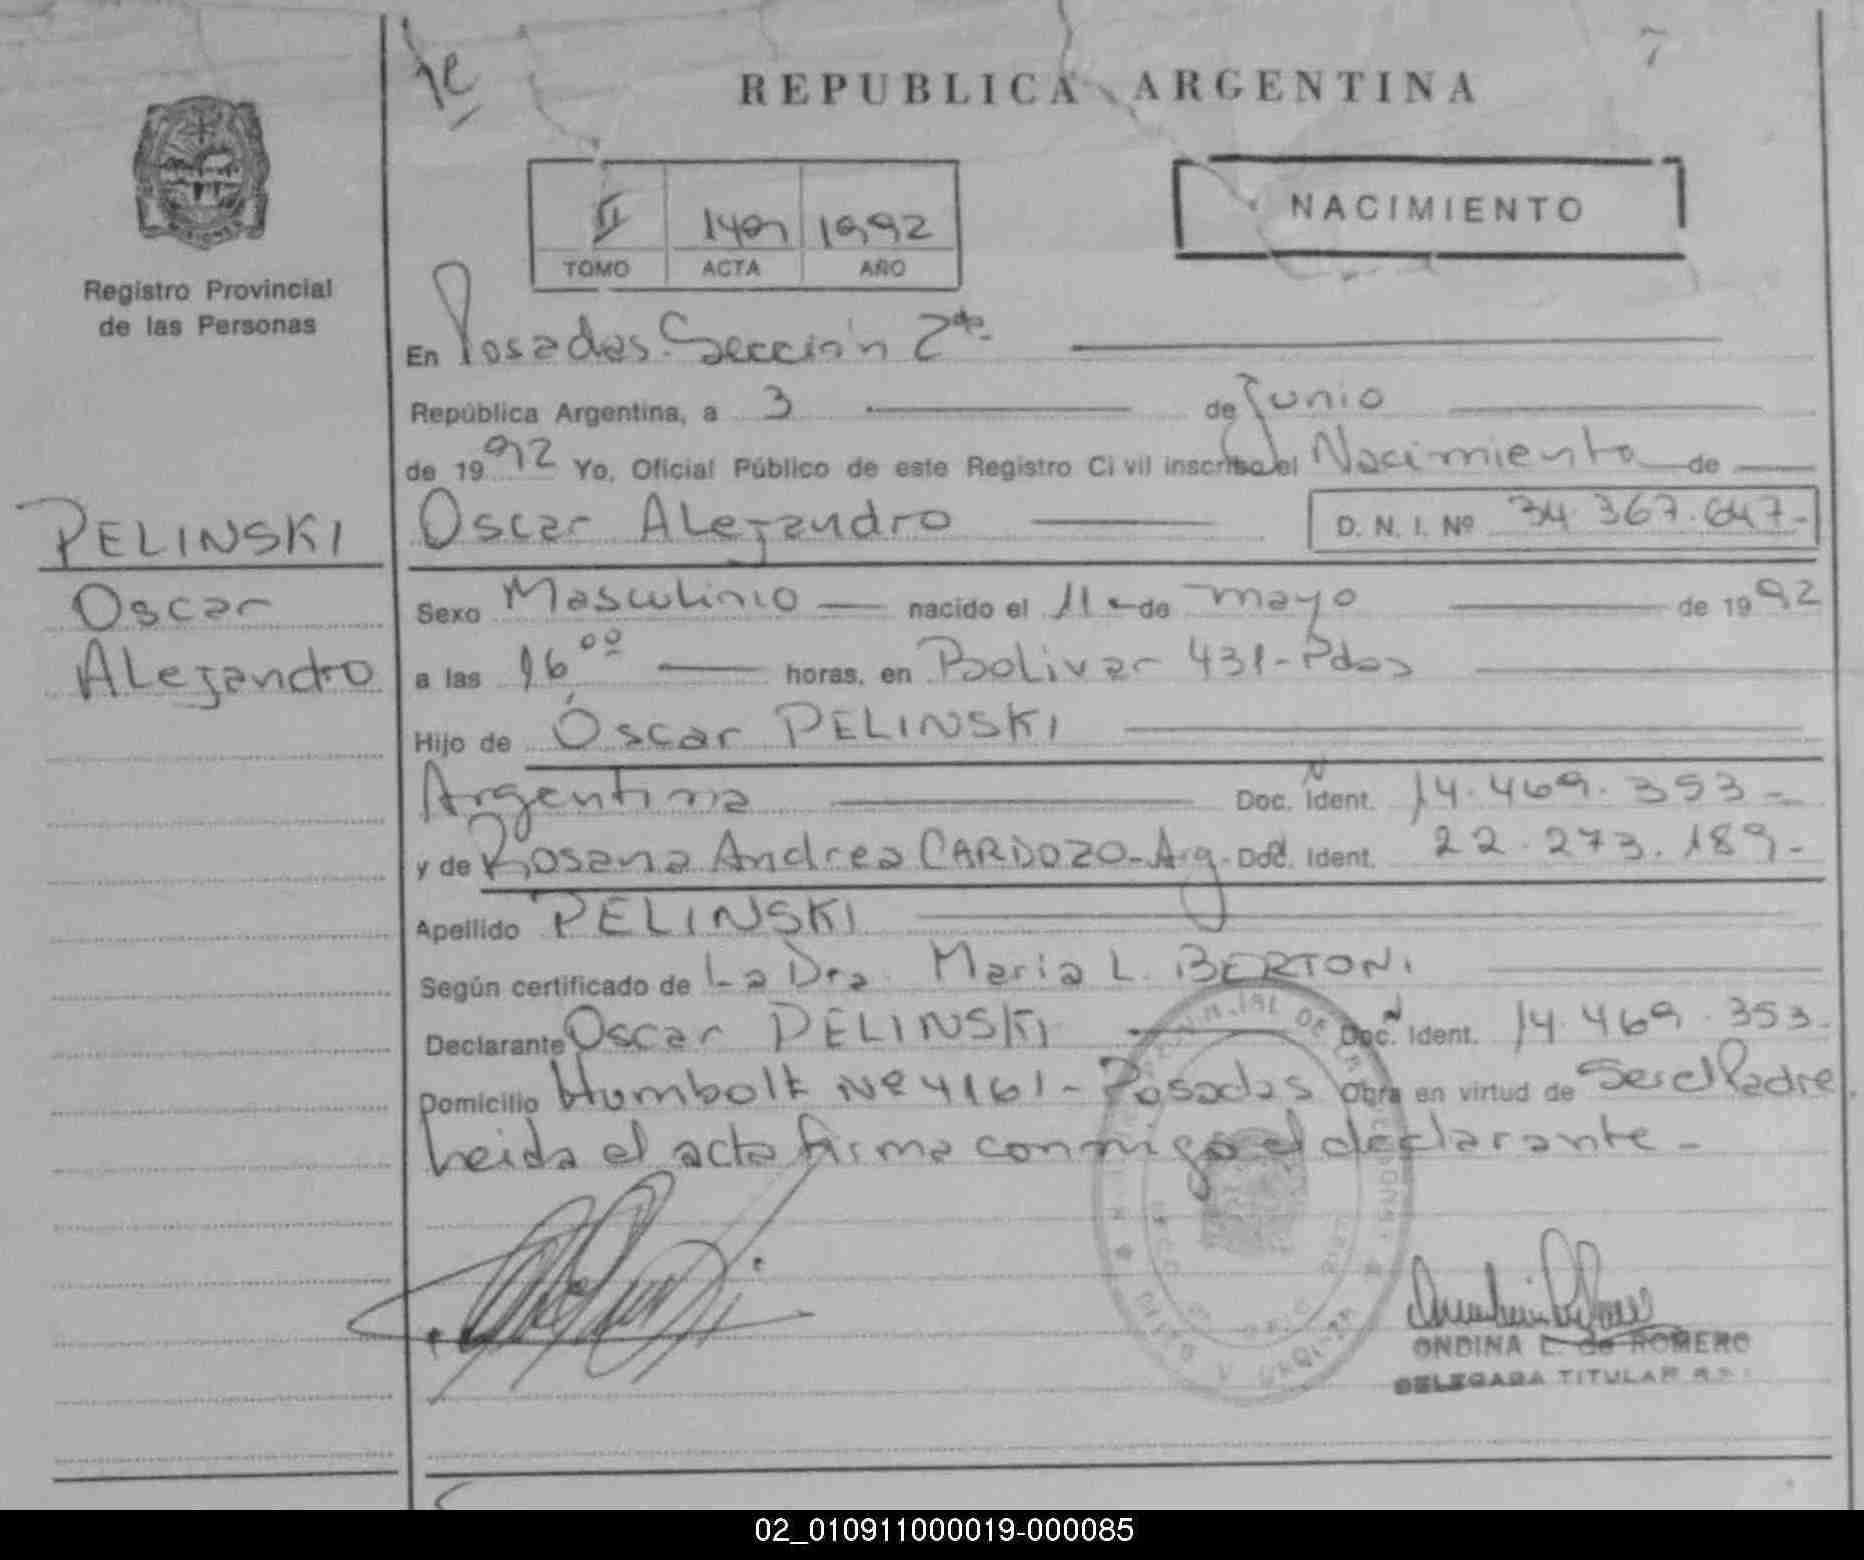 REPUBLICA ARGENTINA
7
MISIONES
Registro Provincial
de las Personas
II 1992
TOMO ACTA AÑO
NACIMIENTO
En Posadas. Sección 2da.
República Argentina, a 3 de Junio
de 1992 Yo, Oficial Público de este Registro Civil inscribo el Nacimiento de
PELINSKI
Oscar
Alejandro
Oscar Alejandro D. N. I. Nº 34.367.647-
Sexo Masculino nacido el 11 de mayo de 1992
a las 16 00 horas, en Bolivar 431-Pdas
Hijo de Óscar PELINSKI
Argentina Doc. Ident. 14.469.353-
y de Rosana Andrea CARDOZO-Arg. Doc. Ident. 22.273.189-
Apellido PELINSKI
Según certificado de La Dra. Maria L. BERTONI
Declarante Oscar PELINSKI Doc. Ident. 14.469.353-
Domicilio Humbolt Nº 4161- Posadas Obra en virtud de Ser el Padre
Leida el acta firma conmigo el declarante-
ONDINA L. de ROMERO
DELEGADA TITULAR
02_010911000019-000085